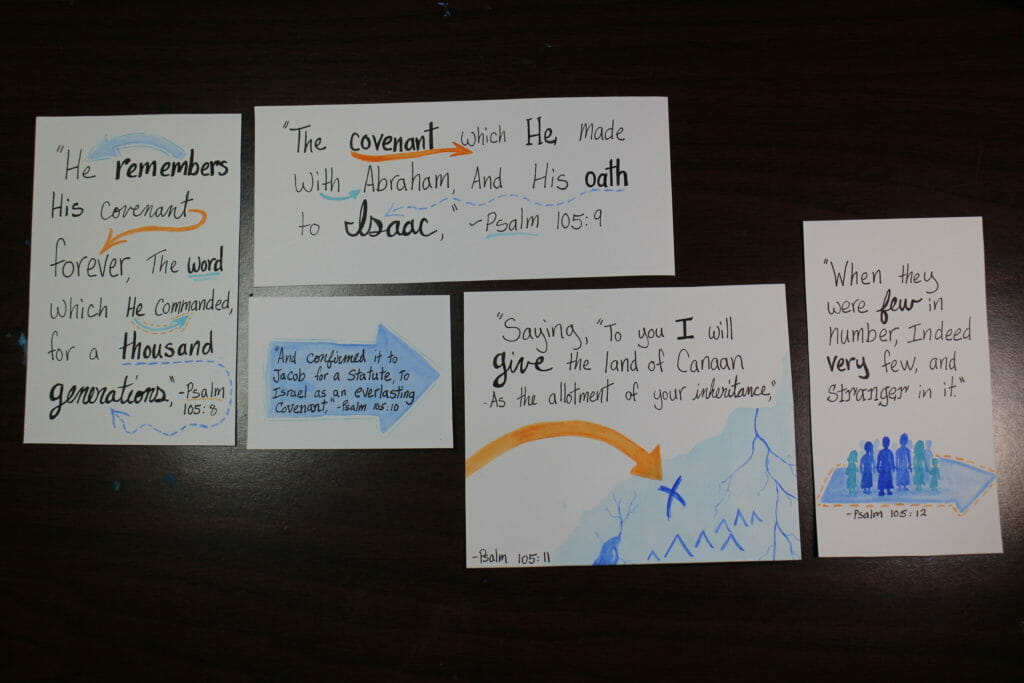 "He remembers
His covenant
forever, The word
which He Commanded,
for a thousand
generations," -Psalm
105:8
"The covenant which He made
With Abraham, And His oath
to Isaac," -Psalm 105:9
"And confirmed it to
Jacob for a Statute, To
Israel as an everlasting
Covenant," -Psalm 105:10
"Saying, "To you I will
give the land of Canaan
As the allotment of your inheritance,"
-Psalm 105:11
"When they
were few in
number, Indeed
very few, and
Stranger in it."
-Psalm 105:12